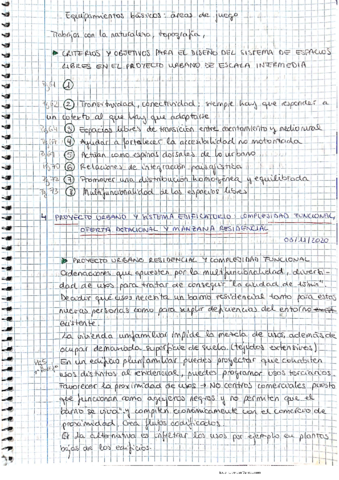 Equipamientos básicos: áreas de juego
Trabajos con la naturaleza, topografía,
► CRITERIOS Y OBJETIVOS PARA EL DISEÑO DEL SISTEMA DE ESPACIOS
LIBRES EN EL PROYECTO URBANO DE ESCALA INTERMEDIA
①
② Transitividad, conectividad; siempre hay que responder a
un contexto al que hay que adaptarse
③ Espacios libres de transición entre asentamiento y medio rural
④ Ayudar a fortalecer la accesibilidad no motorizada
⑤ Actúan como espinas dorsales de lo urbano
⑥ Relaciones de integración paisajística
⑦ Promover una distribución homogénea y equilibrada
⑧ Multifuncionalidad de los espacios libres
4 PROYECTO URBANO Y SISTEMA EDIFICATORIO: COMPLEJIDAD FUNCIONAL,
OFERTA DOTACIONAL Y MANZANA RESIDENCIAL
03/11/2020
► PROYECTO URBANO RESIDENCIAL Y COMPLEJIDAD FUNCIONAL
Ordenaciones que apuesten por la multifuncionalidad, diversi-
dad de usos para tratar de conseguir la ciudad de "viva".
Decidir que usos necesita un barrio residencial tanto para estas
nuevas personas como para suplir deficiencias del entorno
existente.
La vivienda unifamiliar impide la mezcla de usos, además de
ocupar demasiada superficie de suelo (tejidos extensivos).
En un edificio plurifamiliar puedes proyectar que cohabiten
usos distintos al residencial, puedes programar usos terciarios.
Favorecer la proximidad de usos → No centros comerciales puesto
que funcionan como agujeros negros y no permiten que el
barrio se viva y compiten económicamente con el comercio de
proximidad. Crea flujos codificados.
la alternativa es infiltrar los usos por ejemplo en plantas
bajas de los edificios.